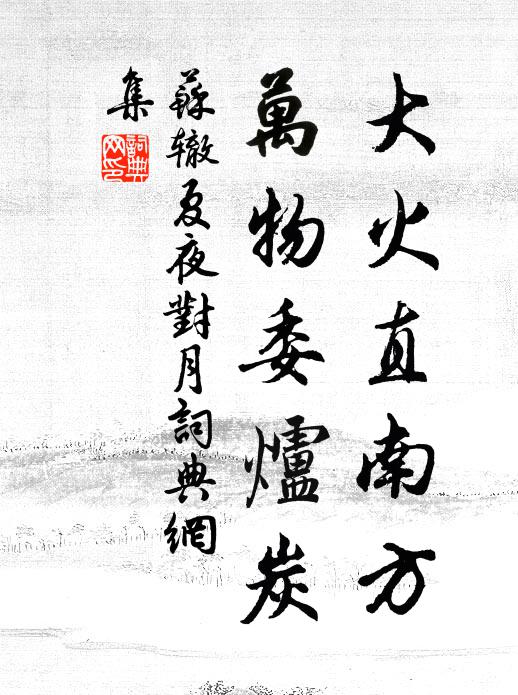 大火直南方
萬物委爐炭
蘇轍夏夜對月詞典網
集
詞典網印